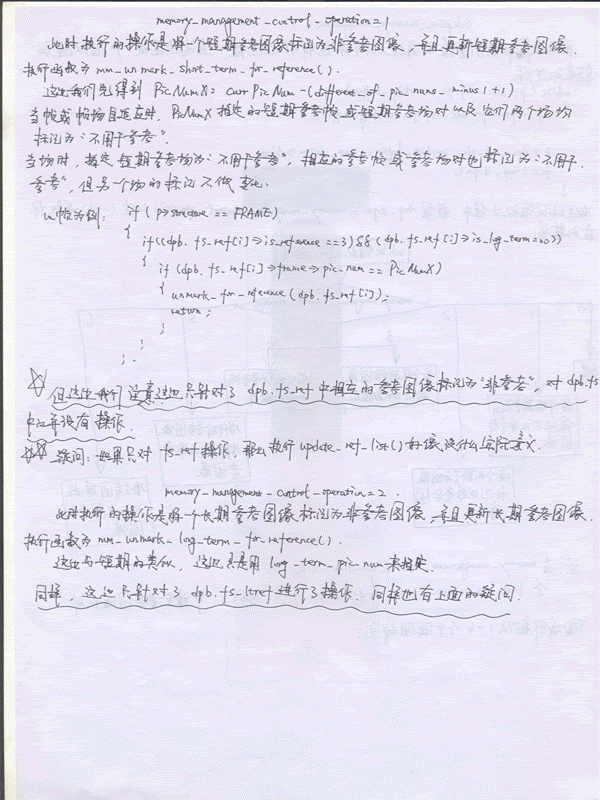 memory_management_control_operation=1
此时执行的操作是将一个短期参考图像标记为非参考图像,并且更新短期参考图像.
执行函数为 mm_unmark_short_term_for_reference().
这边我们先得到 PicNumX = CurrPicNum-(different_of_pic_nums_minus1+1)
当帧或帧场自适应时, PicNumX 指定的短期参考帧或短期参考场对以及它们两个场均
标记为"不用于参考".
当场时,指定短期参考场为"不用于参考",相应的参考帧或参考场对也标记为"不用于
参考",但另一个场的标记不做变化.
以帧为例: if (p->structure == FRAME)
{
if((dpb.fs_ref[i]->is_reference==3)&&(dpb.fs_ref[i]->is_log_term==0))
{
if (dpb.fs_ref[i]->frame->pic_num == PicNumX)
{
unmark_for_reference(dpb.fs_ref[i]);
return;
}
}
}
但这边我们注意:这边只针对了 dpb.fs_ref 中相应的参考图像标记为"非参考",对 dpb.fs
中并没有操作.
疑问:如果只对 fs_ref 操作,那么执行 update_ref_list() 好像没什么实际意义.
memory_management_control_operation=2.
此时执行的操作是将一个长期参考图像标记为非参考图像,并且更新长期参考图像.
执行函数为 mm_unmark_long_term_for_reference().
这边与短期的类似,这边只是用 long_term_pic_num 来指定.
同样,这边只针对了 dpb.fs_ltref 进行了操作. 同样也有上面的疑问.